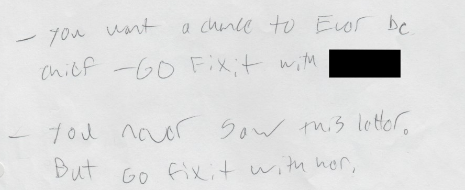 - you want a chance to Ever be
chief - GO Fix it with
- you never saw this letter.
But Go fix it with her.